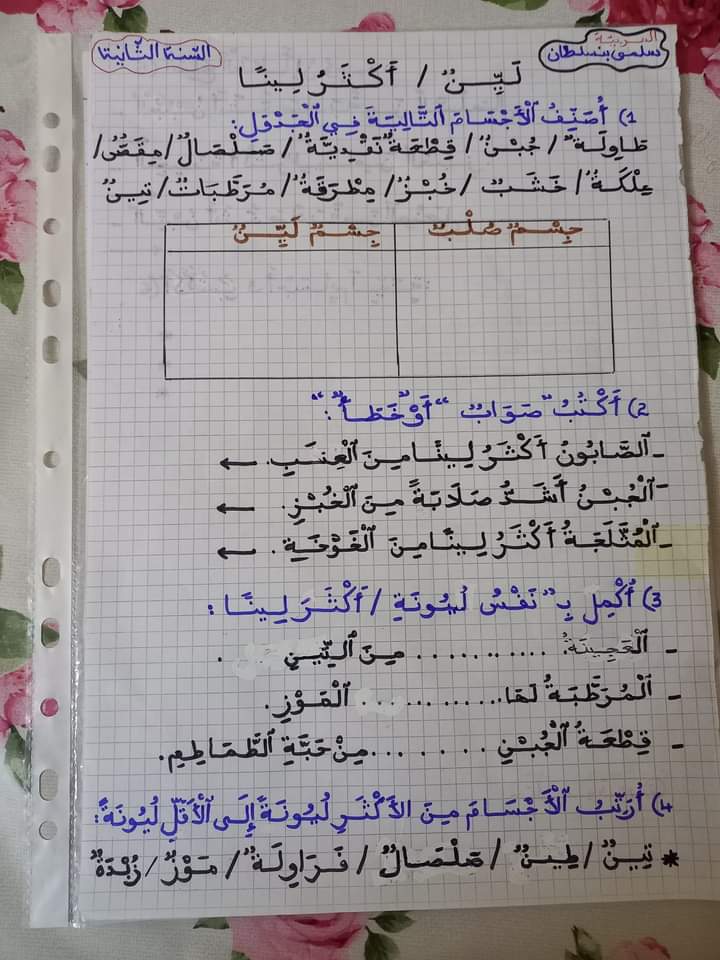 المربية
سلمى بنسلطان
السّنة الثّانية
لَيِّـنٌ / أَكْـثَـرُ لِـيـنًـا
1) أُصَنِّفُ ٱلْأَجْسَامَ التَّالِيَةَ فِي ٱلْجَدْوَلِ:
طَاوِلَةٌ / جُبْنٌ / قِطْعَةٌ نَقْدِيَّةٌ / صَلْصَالٌ / مِقَصٌّ /
عِلْكَةٌ / خَشَبٌ / خُبْزٌ / مِطْرَقَةٌ / مُرَطَّبَاتٌ / تِينٌ
جِسْمٌ صُلْبٌ
جِسْمٌ لَيِّنٌ
2) أَكْتُبُ "صَوَابٌ" أَوْ "خَطَأٌ":
ـ ٱلصَّابُونُ أَكْثَرُ لِينًا مِنَ ٱلْعِنَبِ. ←
ـ ٱلْجُبْنُ أَشَدُّ صَلَابَةً مِنَ ٱلْخُبْزِ. ←
ـ ٱلْمُثَلَّجَةُ أَكْثَرُ لِينًا مِنَ ٱلْخَوْخَةِ. ←
3) أُكْمِلُ بِـ "نَفْسُ لُيُونَةِ / أَكْثَرَ لِينًا:
ـ ٱلْعَجِينَةُ ........... مِنَ ٱلتِّينِ .
ـ ٱلْمُرَطَّبَةُ لَهَا ........... ٱلْمَوْزِ.
ـ قِطْعَةُ ٱلْجُبْنِ ........ مِنْ حَبَّةِ ٱلطَّمَاطِمِ.
4) أُرَتِّبُ ٱلْأَجْسَامَ مِنَ الأَكْثَرِ لُيُونَةً إِلَى ٱلْأَقَلِّ لُيُونَةً:
* تِينٌ / طِينٌ / صَلْصَالٌ / فَرَاوِلَةٌ / مَوْزٌ / زُبْدَةٌ